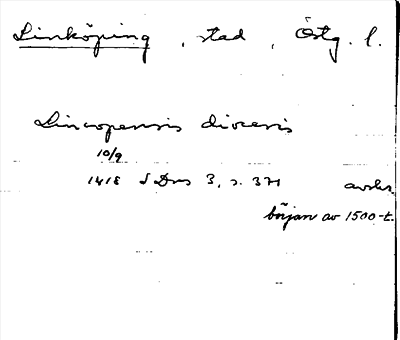 Linköping, stad, Östg. l.
Lincopensis diocesis
10/9
1418 SDns 3, s. 371 avskr.
början av 1500-t.